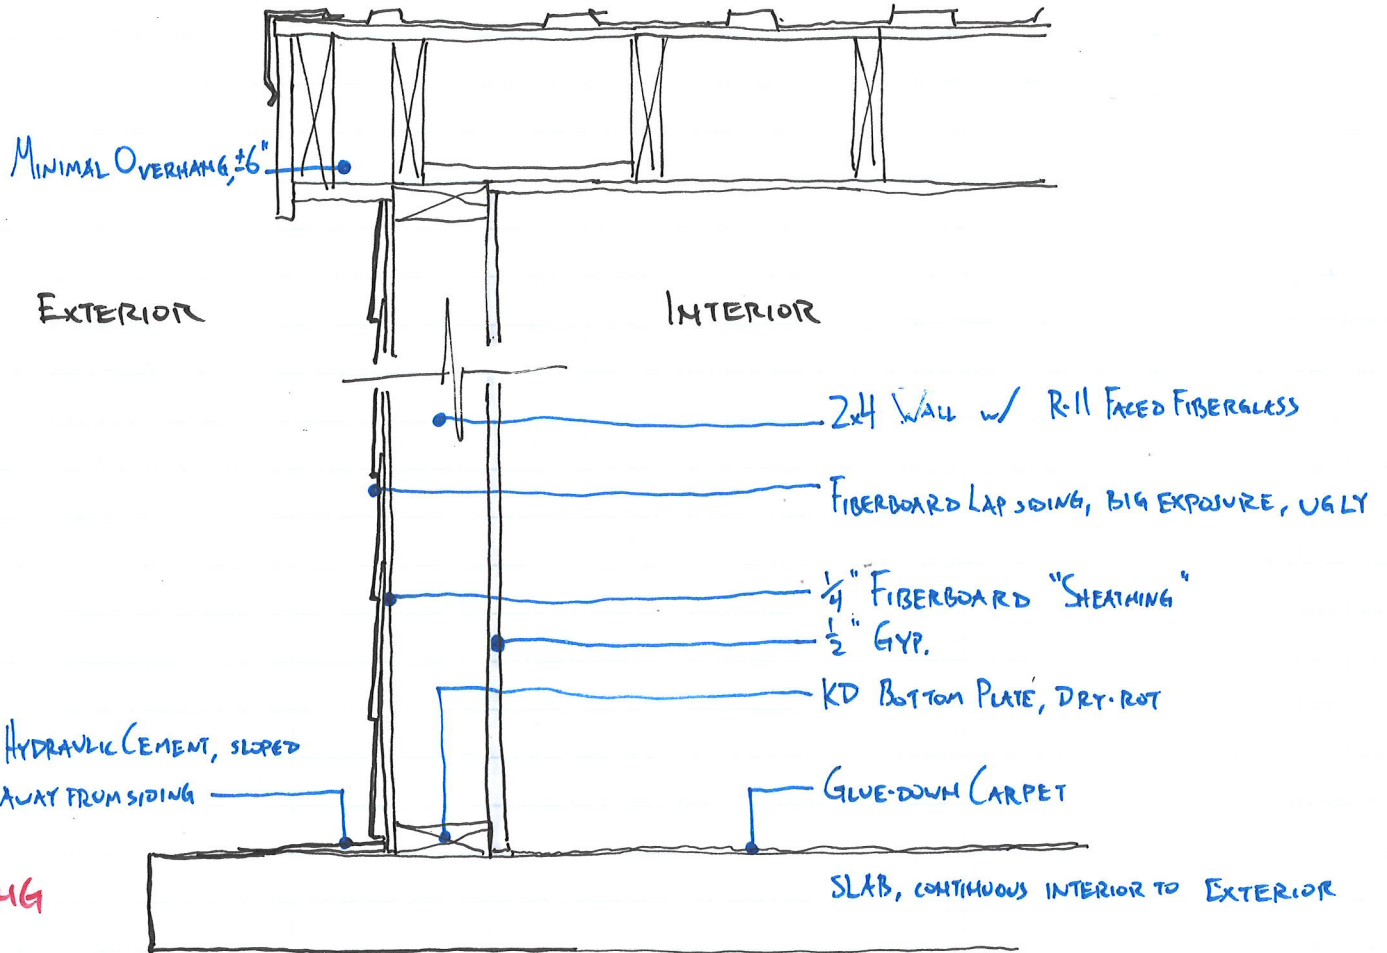 MINIMAL OVERHANG, ±6"
EXTERIOR
INTERIOR
2x4 WALL w/ R-11 FACED FIBERGLASS
FIBERBOARD LAP SIDING, BIG EXPOSURE, UGLY
1/4" FIBERBOARD "SHEATHING"
1/2" GYP.
KD BOTTOM PLATE, DRY-ROT
HYDRAULIC CEMENT, SLOPED
AWAY FROM SIDING
GLUE-DOWN CARPET
SLAB, CONTINUOUS INTERIOR TO EXTERIOR